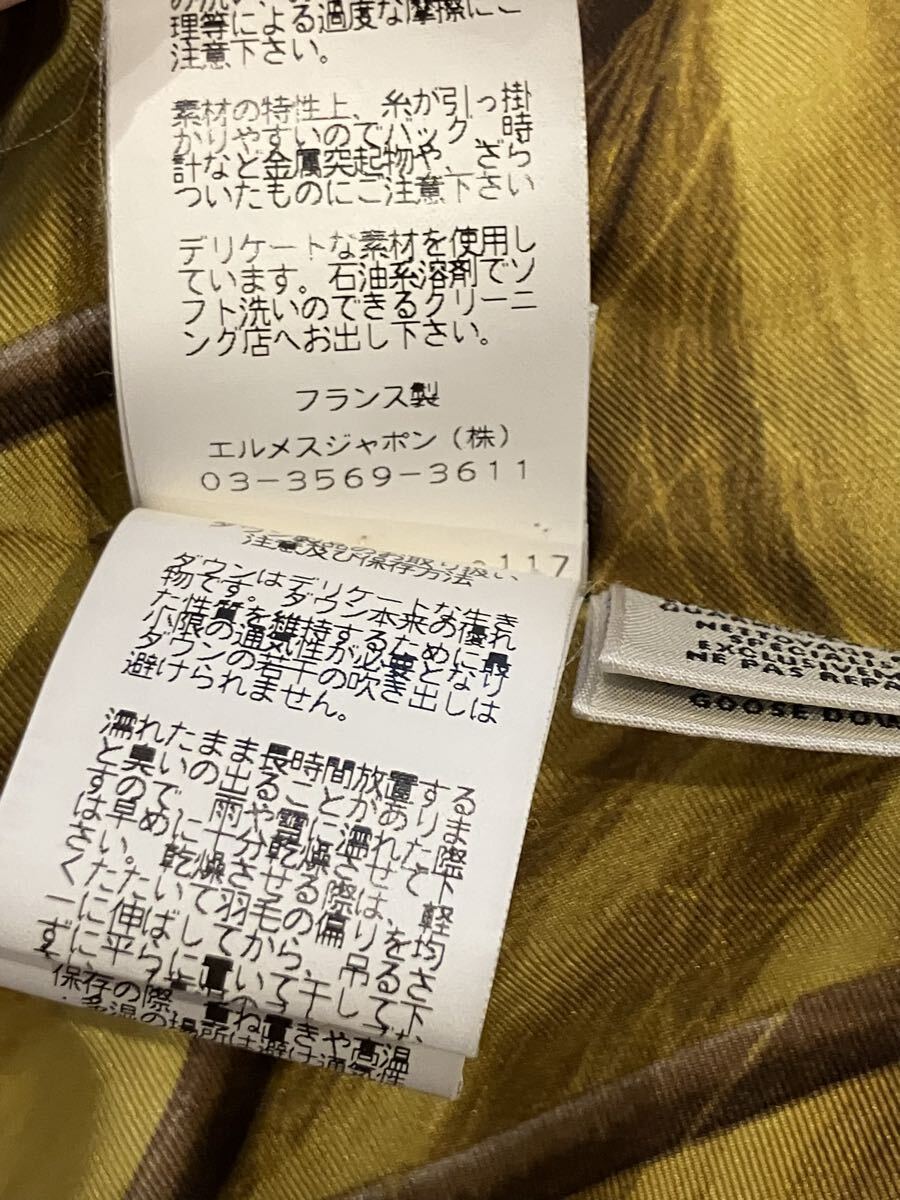 理等による過度な摩擦にご
注意下さい。
素材の特性上、糸が引っ掛
かりやすいのでバッグ、時
計など金属突起物や、ざら
ついたものにご注意下さい
デリケートな素材を使用し
ています。石油系溶剤でソ
フト洗いのできるクリーニ
ング店へお出し下さい。
フランス製
エルメスジャポン（株）
03-3569-3611
117
ダウン製品のお取り扱い
注意及び保存方法
ダウンはデリケートな生き
物です。ダウン本来の優れ
た性質を維持するために最
小限の通気性が必要となり
ダウンの若干の吹き出しは
避けられません。
濡れたまま長時間放置する
と臭いの出ることがありま
すので雨や雪に濡れた際
は早めに十分乾燥させて下
さい。乾燥させる際は、軽
くたたいて羽毛の偏りを均
一に伸ばしてから、吊るさ
ずに平らに
保存の際、重ね置きや高温
多湿の場所は避け通気性
NETTOYAGE
SPECIALI
EXCLUSIVEM
NE PAS REPA
GOOSE DOW